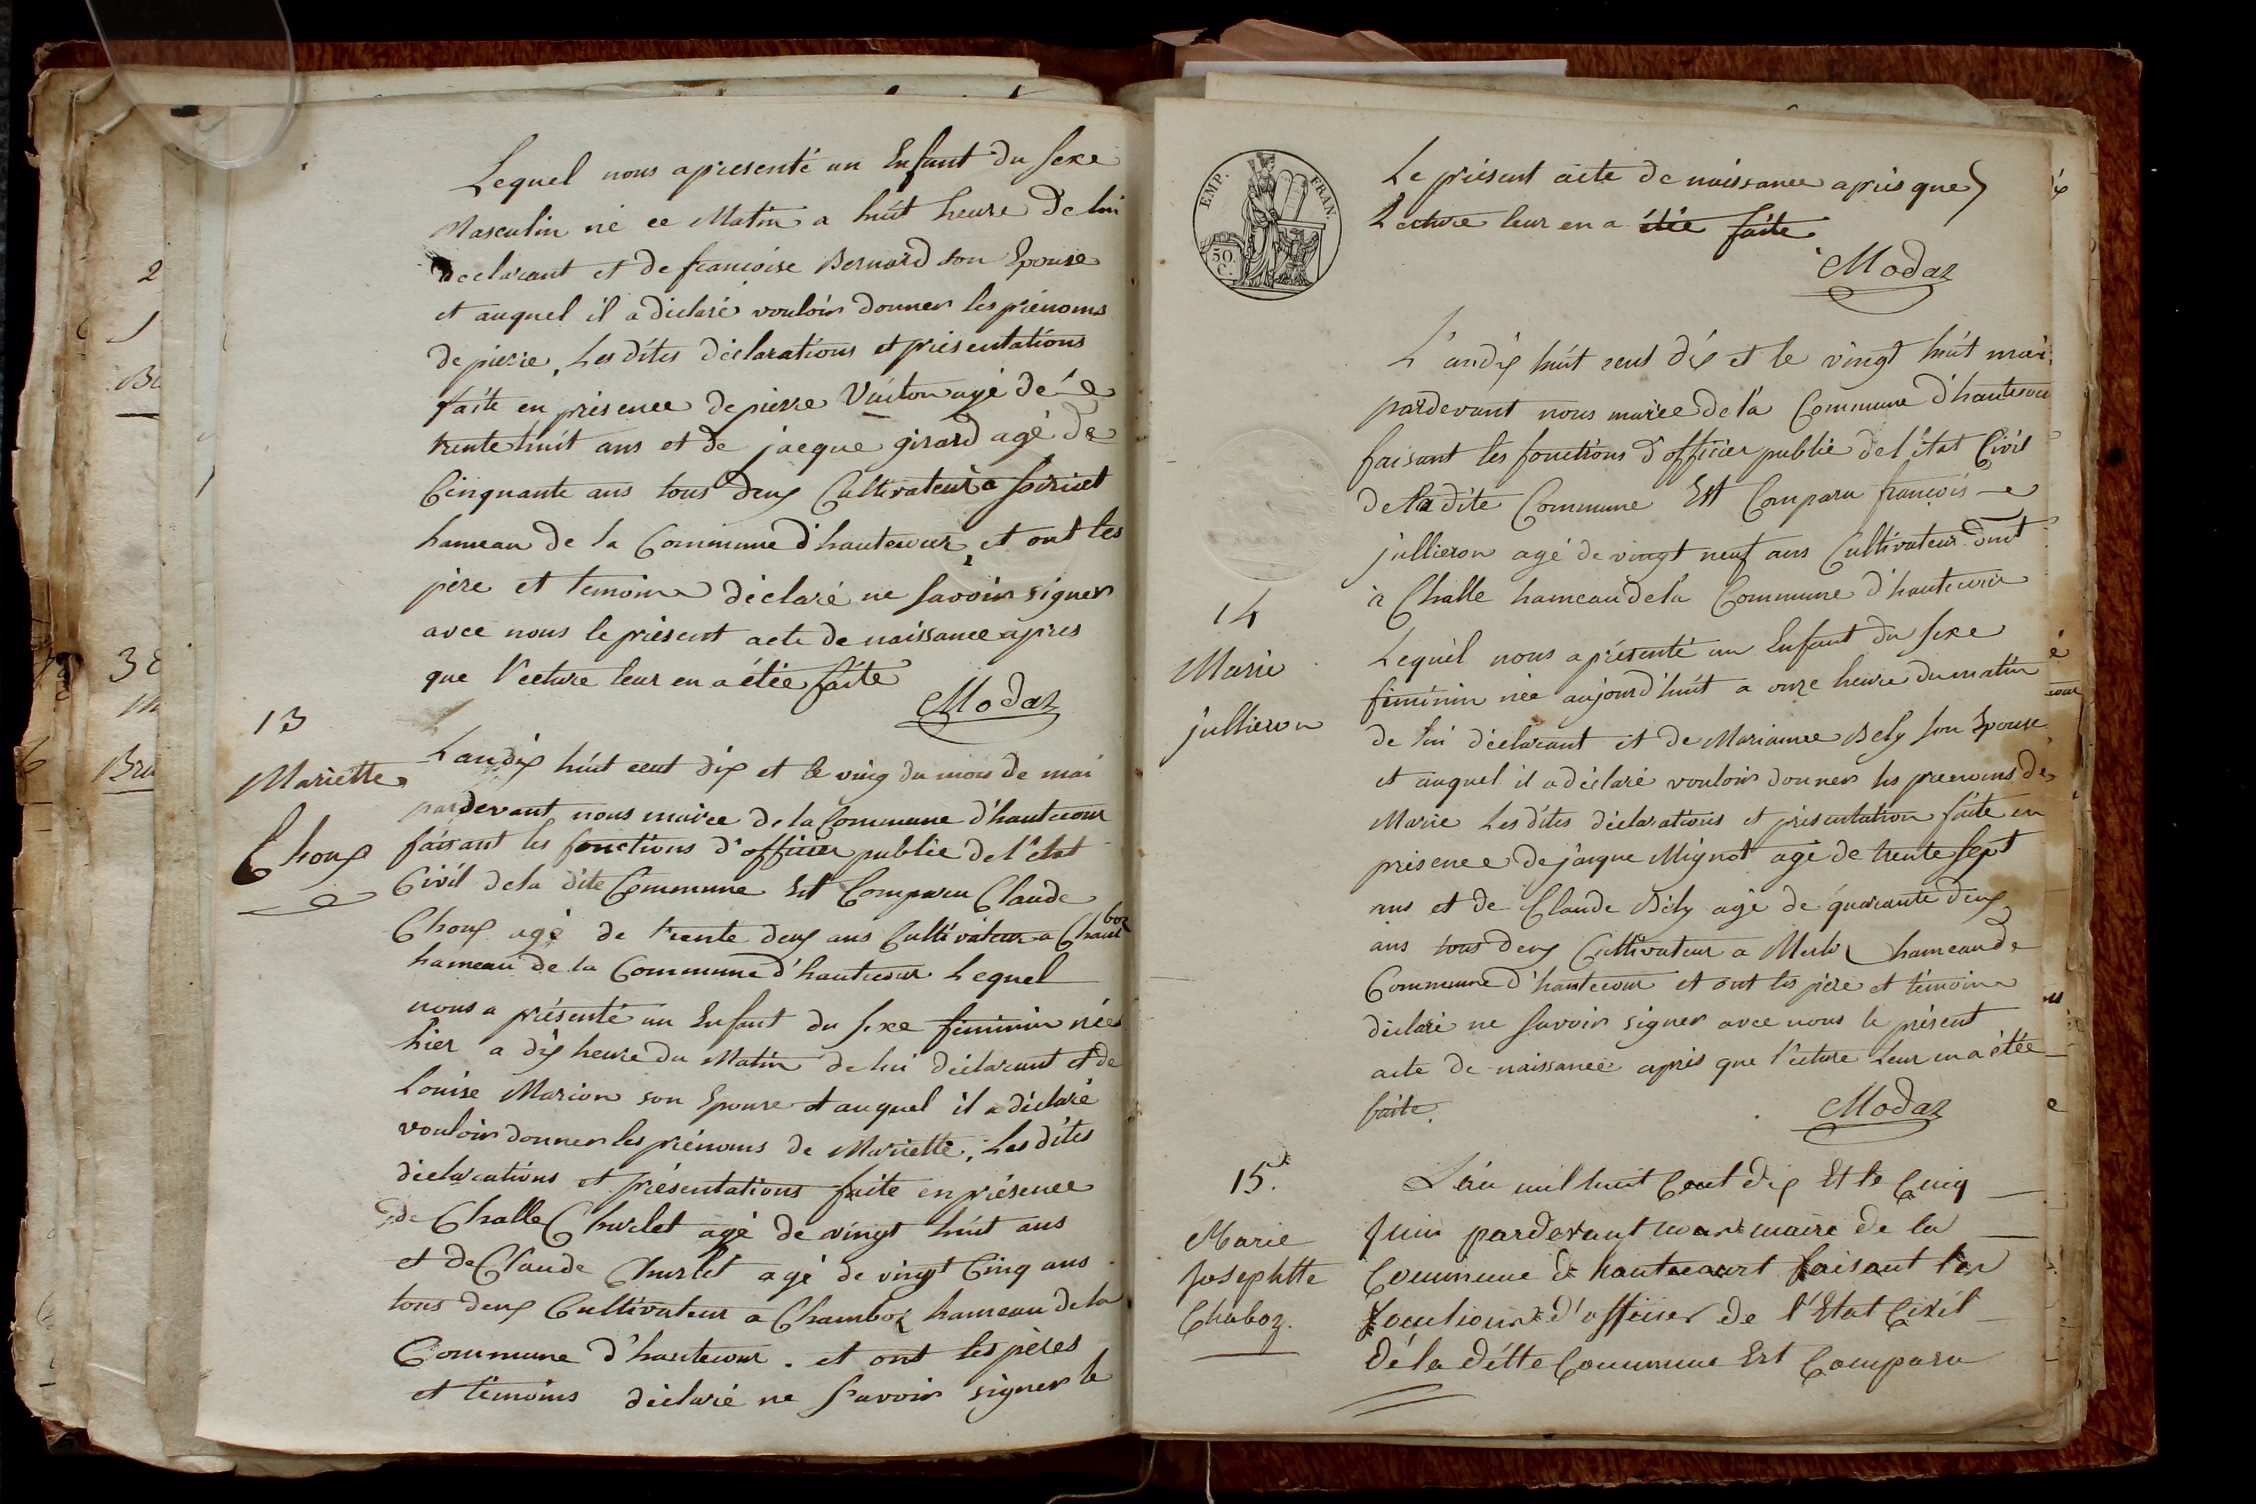 Lequel nous apresenté un Enfant du sexe
Masculin né ce Matin a huit heure de lui
declarant et de francoise Bernard son Epouse
et auquel il a déclaré vouloir donner les prénoms
de pierre, Les dites déclarations et présentations
faite en présence de pierre Vuiton agé de
trente huit ans et de jacque girard agé de
Cinquante ans tous deux Cultivateur a
hameau de la Commune d'hautecour, et ont les
père et temoins déclaré ne savoir signer
avec nous le présent acte de naissance apres
que l'ecture leur en a étée faite
Modaz
13
Mariette
Choux
L'an dix huit cent dix et le ving du mois de mai
pardevant nous maire de la Commune d'hautecour
faisant les fonctions d'officier public de l'etat
Civil de la dite Commune Est Comparu Claude
Choux agé de trente deux ans Cultivateur a
hameau de la Commune d'hautecour Lequel
nous a présenté un Enfant du sexe feminin née
hier a dix heure du Matin de lui déclarant et de
Louise Marion son Epouse et auquel il a déclaré
vouloir donner les prénoms de Mariette, Les dites
déclarations et présentations faite en présence
de Challe Churlet agé de vingt huit ans
et de Claude Churlet agé de vingt Cinq ans
tous deux Cultivateur a Chamboz hameau de la
Commune d'hautecour. et ont les pères
et témoins déclaré ne savoir signer le
EMP. FRAN.
50. C.
Le présent acte de naissance après que
Lecture leur en a étée faite
Modaz
L'an dix huit cent dix et le vingt huit mai
pardevant nous maire de la Commune d'hautecour
faisant les fonctions d'officier public de l'état Civil
de la dite Commune Est Comparu françois
jullieron agé de vingt neuf ans Cultivateur dmt
à Challe hameau de la Commune d'hautecour
14
Marie
jullieron
Lequel nous a présenté un Enfant du sexe
féminin née aujourd'huit a onze heure du matin
de lui déclarant et de Marianne Bely son Epouse
et auquel il a déclaré vouloir donner les prenoms de
Marie Les dites déclarations et présentation faite en
présence de jacque Mignot agé de trente sept
ans et de Claude Bely agé de quarante deux
ans tous deux Cultivateur a Merloz hameau de
Commune d'hautecour et ont les père et témoins
déclaré ne savoir signer avec nous le présent
acte de naissance après que l'ecture Leur en a étée
faite.
Modaz
15.
Marie
Josephtte
Chaboz.
L'an mil huit Cent dix Et le Cinq
Juin pardevant nous maire de la
Commune de hautecourt faisant les
fonctions d'officier de l'Etat Civil
dé la ditte Commune Est Comparu